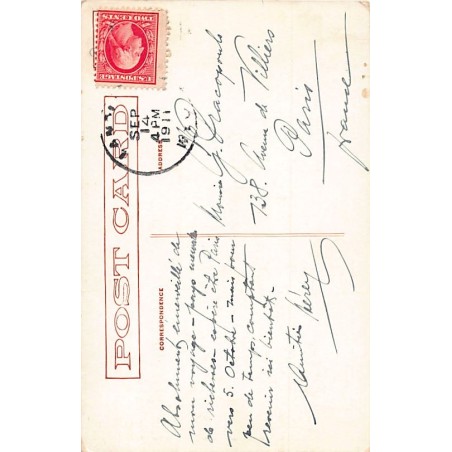 POST CARD
CORRESPONDENCE
ADDRESS
U.S. POSTAGE
TWO CENTS
SEP
14
4 PM
1911
Absolument émerveillé de
mon voyage - pays
de richesses - espère être Paris
vers 5. Octobre - mais pour
peu de temps comptant
revenir ici bientôt -
Monsieur G. Cracopoulo
138. Avenue de Villiers
Paris
France